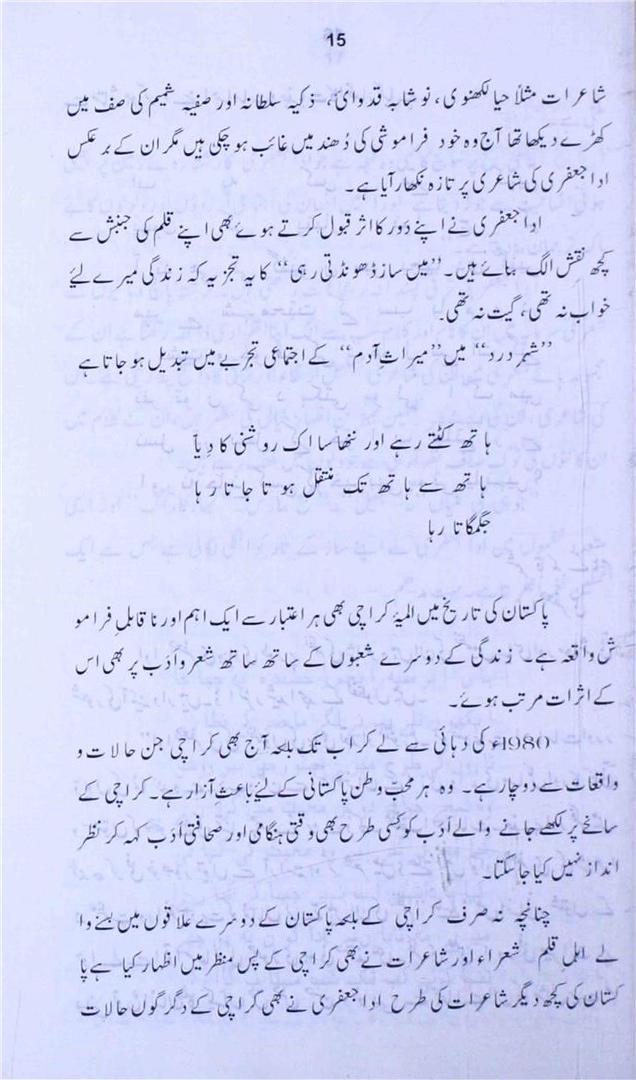 15
شاعرات مثلاً حیا لکھنوی، نوشابہ قدوائی، ذکیہ سلطانہ اور صفیہ شمیم کی صف میں
کھڑے دیکھا تھا آج وہ خود فراموشی کی دُھند میں غائب ہو چکی ہیں مگر ان کے برعکس
ادا جعفری کی شاعری پر تازہ نکھار آیا ہے۔
ادا جعفری نے اپنے دَور کا اثر قبول کرتے ہوئے بھی اپنے قلم کی جنبش سے
کچھ نقش الگ بنائے ہیں۔ ”میں ساز ڈھونڈتی رہی“ کا یہ تجزیہ کہ زندگی میرے لیٔے
خواب نہ تھی، گیت نہ تھی۔
”شہر درد“ میں ”میراثِ آدم“ کے اجتماعی تجربے میں تبدیل ہو جاتا ہے
ہاتھ کٹتے رہے اور ننھا سا اک روشنی کا دِیا
ہاتھ سے ہاتھ تک منتقل ہوتا جاتا رہا
جگمگاتا رہا
پاکستان کی تاریخ میں المیۂ کراچی بھی ہر اعتبار سے ایک اہم اور ناقابلِ فرامو
ش واقعہ ہے۔ زندگی کے دوسرے شعبوں کے ساتھ ساتھ شعر و اَدب پر بھی اس
کے اثرات مرتب ہوئے۔
1980ء کی دہائی سے لے کر اب تک بلکہ آج بھی کراچی جن حالات و
واقعات سے دوچار ہے۔ وہ ہر محبِّ وطن پاکستانی کے لیٔے باعثِ آزار ہے۔ کراچی کے
سانحے پر لکھے جانے والے اَدب کو کسی طرح بھی وقتی ہنگامی اور صحافتی اَدب کہہ کر نظر
انداز نہیں کیا جا سکتا۔
چنانچہ نہ صرف کراچی کے بلکہ پاکستان کے دوسرے علاقوں میں بسنے وا
لے اہلِ قلم شعراء اور شاعرات نے بھی کراچی کے پس منظر میں اظہار کیا ہے پا
کستان کی کچھ دیگر شاعرات کی طرح ادا جعفری نے بھی کراچی کے دگرگوں حالات